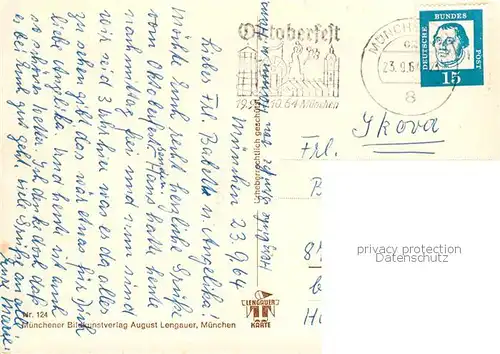 München 23.9.64
Liebes Frl. Babette u. Angelika!
Möchte Euch recht herzliche Grüße
vom Oktoberfest senden. Hans hatte heute
nachmittag frei und nun sind
wir seid 3 Uhr hier was es da alles
zu sehen gibt das wär etwas für Dich
liebe Angelika. Und heute ist auch
so schönes Wetter. Ich denke doch daß
es Euch gut geht. Viele Grüße an alle
Eure Marie
Oktoberfest
19.9. 4.10.64 München
MÜNCH
23.9.64
8
DEUTSCHE BUNDES POST
15
Skova
Frl.
B
8
b
H
Urheberrechtlich geschützt
LENGAUER
KARTE
Nr. 124
Münchener Bildkunstverlag August Lengauer, München
privacy protection
watermark